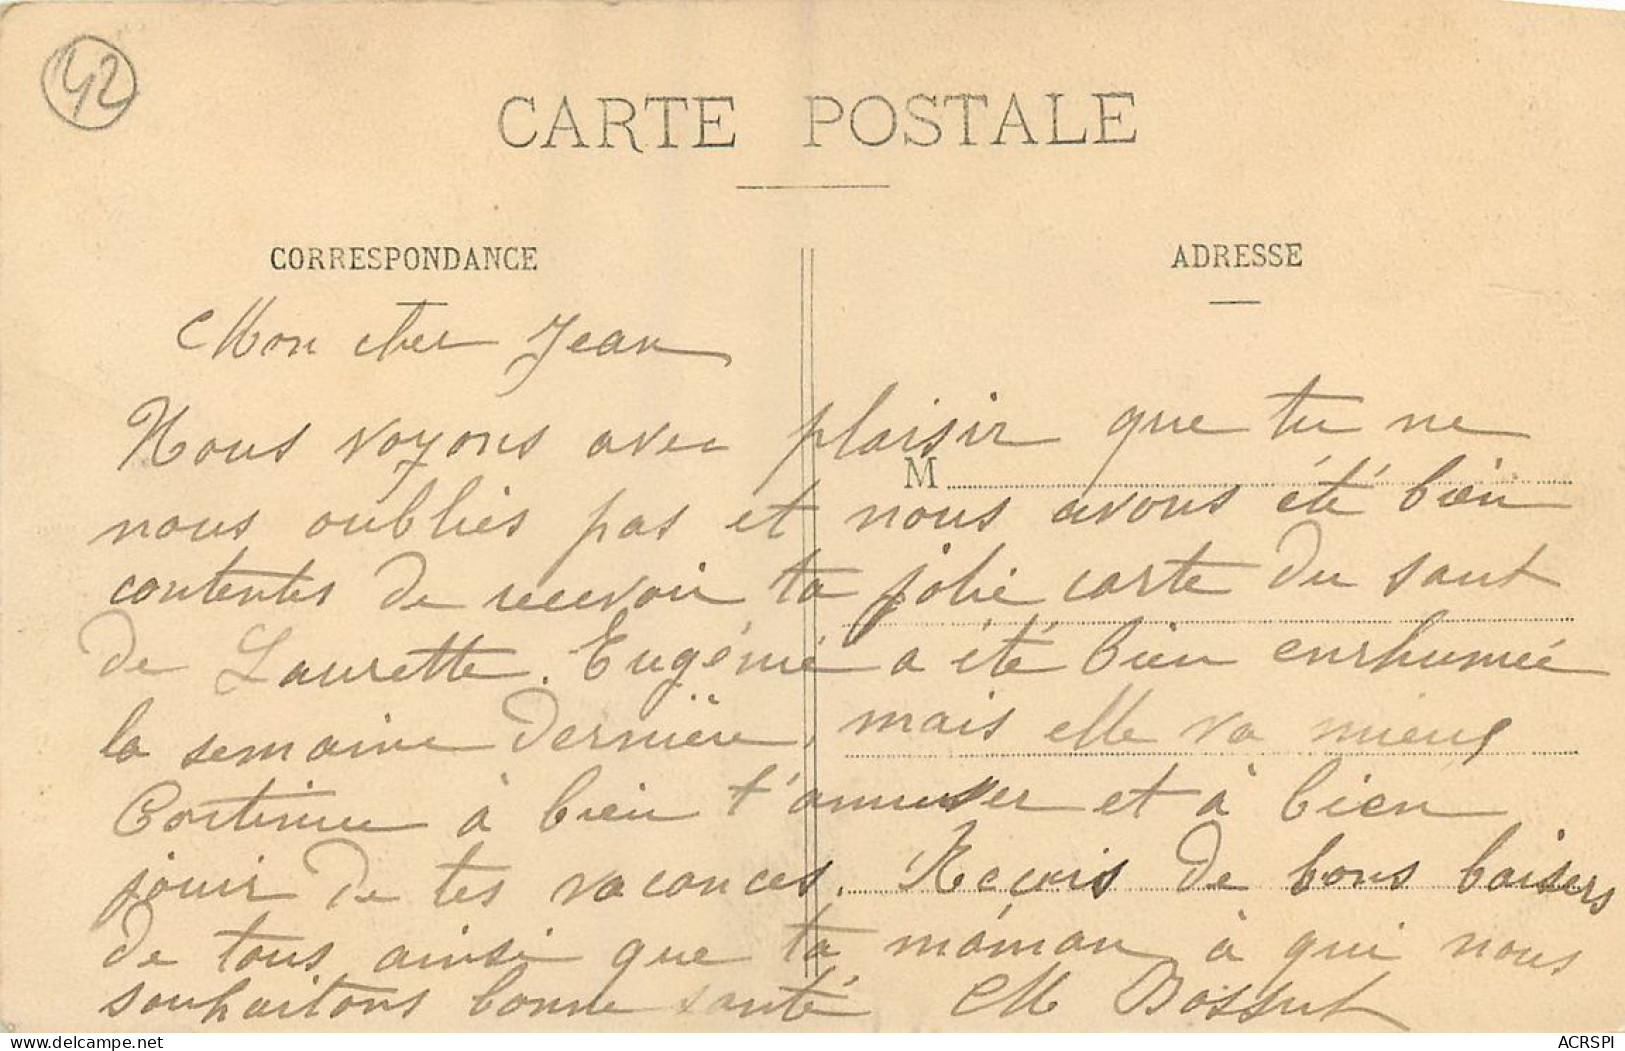 42
CARTE POSTALE
CORRESPONDANCE
ADRESSE
Mon cher Jean
Nous voyons avec plaisir que tu ne
M
nous oublies pas et nous avons été bien
contentes de recevoir ta jolie carte du saut
de Laurette. Eugénie a été bien enrhumée
la semaine dernière, mais elle va mieux
Continue à bien t'amuser et à bien
jouir de tes vacances. Reçois de bons baisers
de tous ainsi que ta maman à qui nous
souhaitons bonne santé M Bossut
ACRSPI